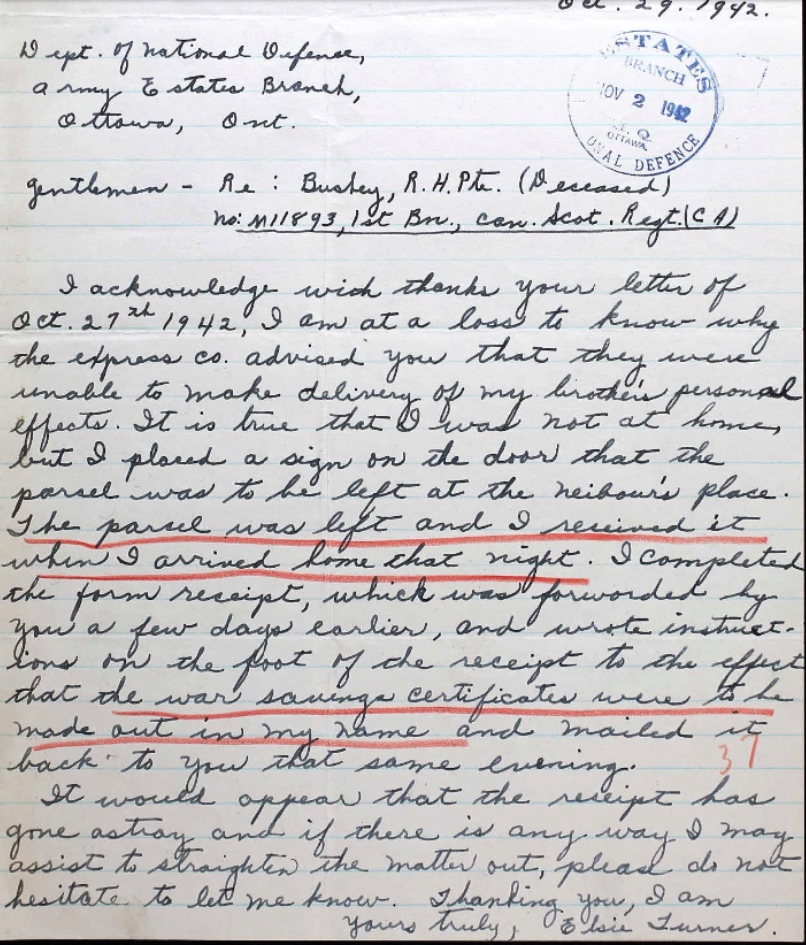 Oct. 29. 1942.
Dept. of National Defense,
Army Estates Branch,
Ottowa, Ont.
ESTATES
BRANCH
NOV 2 1942
H. Q.
OTTAWA.
ONAL DEFENCE
Gentlemen - Re: Bushey, R.H. Pte. (Deceased)
no: M11893, 1st Bn., Can. Scot. Regt. (CA)
I acknowledge with thanks your letter of
Oct. 27th 1942, I am at a loss to know why
the express co. advised you that they were
unable to make delivery of my brother's personal
effects. It is true that I was not at home,
but I placed a sign on the door that the
parsel was to be left at the neibour's place.
The parsel was left and I received it
when I arrived home that night. I completed
the form receipt, which was forworded by
you a few days earlier, and wrote instruct-
ions on the foot of the receipt to the effect
that the war savings certificates were to be
made out in my name and mailed it
back to you that same evening.
37
It would appear that the receipt has
gone astray and if there is any way I may
assist to straighten the matter out, please do not
hesitate to let me know. Thanking you, I am
Yours truly, Elsie Turner.